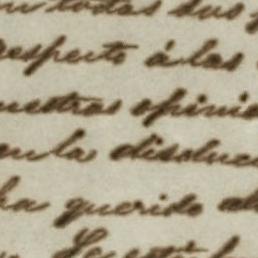 en todas sus
respecto á las
nuestras opinio
en la disoluci
ha querido al
La